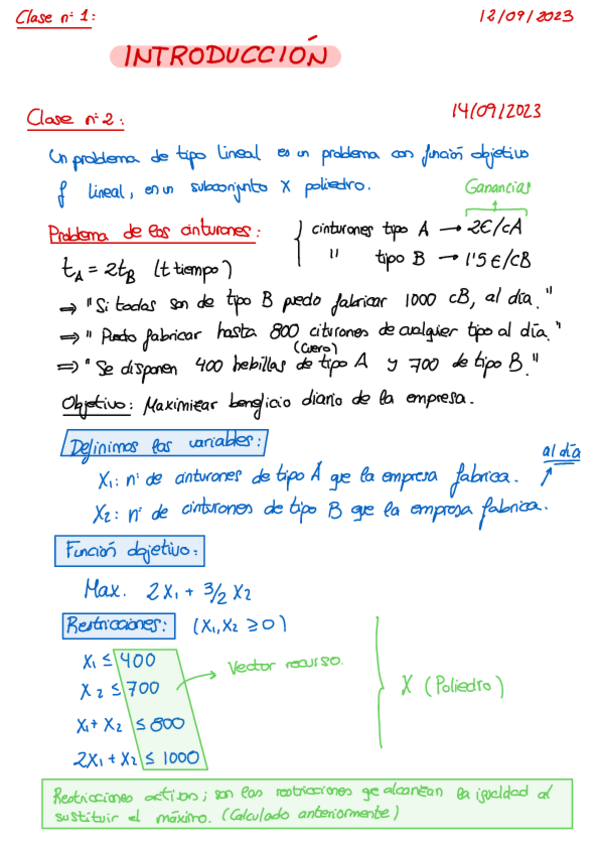 Clase nº 1: 12/09/2023
INTRODUCCIÓN
Clase nº 2: 14/09/2023
Un problema de tipo lineal es un problema con función objetivo
f lineal, en un subconjunto X poliedro.
Ganancias
Problema de los cinturones: cinturones tipo A → 2€/cA
" tipo B → 1'5€/cB
tA = 2tB (t tiempo)
⇒ "Si todos son de tipo B puedo fabricar 1000 cB, al día."
⇒ "Puedo fabricar hasta 800 citurones de cualquier tipo al día."
(cuero)
⇒ "Se disponen 400 hebillas de tipo A y 700 de tipo B."
Objetivo: Maximizar beneficio diario de la empresa.
Definimos las variables: al día
X1: nº de cinturones de tipo A que la empresa fabrica.
X2: nº de cinturones de tipo B que la empresa fabrica.
Función objetivo:
Max. 2X1 + 3/2 X2
Restricciones: (X1, X2 ≥ 0)
X1 ≤ 400 Vector recurso.
X2 ≤ 700 X (Poliedro)
X1 + X2 ≤ 800
2X1 + X2 ≤ 1000
Restricciones activas; son las restricciones qe alcanzan la igualdad al
sustituir el máximo. (Calculado anteriormente)